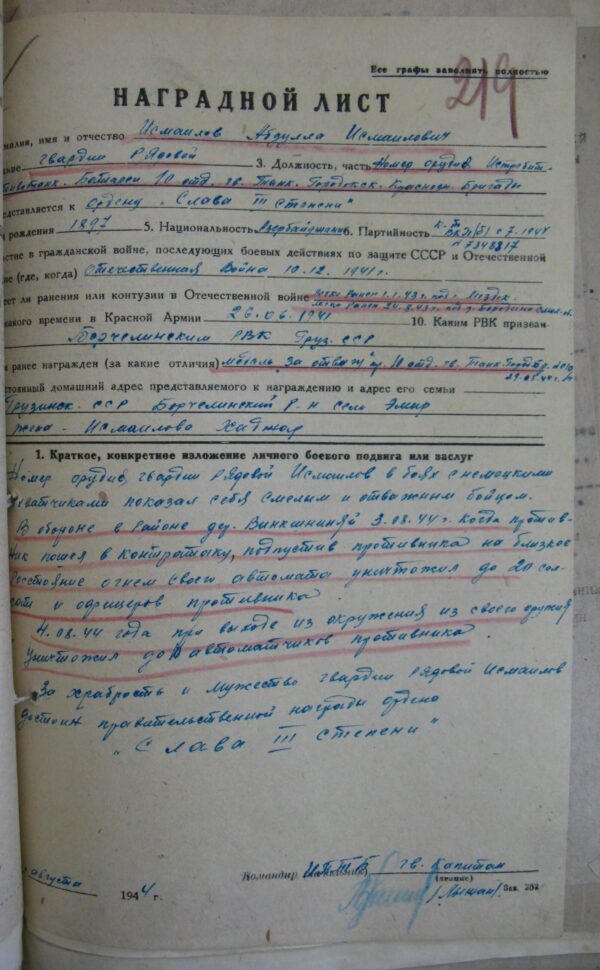 Все графы заполнять полностью
219
НАГРАДНОЙ ЛИСТ
милия, имя и отчество Исмаилов Абдулла Исмаилович
ание гвардии Рядовой 3. Должность, часть Номер орудия Истребит.
Противотанк. Батареи 10 отд. гв. Танк. Городокск. Краснозн. бригады
едставляется к Ордену „Слава III Степени"
д рождения 1897 5. Национальность Азербайджанец 6. Партийность к-т ВКП(б) с 7.1944
№ 7348817
астие в гражданской войне, последующих боевых действиях по защите СССР и Отечественной
не (где, когда) Отечественная Война 10.12.1941 г.
еет ли ранения или контузии в Отечественной войне Легко Ранен 1.1.43 г. под г. Моздок.
Легко Ранен 24.8.43 г. под
какого времени в Красной Армии 26.06.1941 10. Каким РВК призван
Борчелинским РВК Груз. ССР
м ранее награжден (за какие отличия) Медаль „За отвагу" пр. 10 отд. гв. Танк.
стоянный домашний адрес представляемого к награждению и адрес его семьи
Грузинск. ССР Борчелинский Р-н село Эмир
жена - Исмаилова Хаджар
1. Краткое, конкретное изложение личного боевого подвига или заслуг
Номер орудия, гвардии Рядовой Исмаилов в боях с немецкими
захватчиками показал себя смелым и отважным бойцом.
В обороне в районе дер. 3.08.44 г. когда против-
ник пошел в контратаку, подпустив противника на близкое
Расстояние огнем своего автомата уничтожил до 20 сол-
дат и офицеров противника.
4.08.44 года при выходе из окружения из своего оружия
уничтожил до 10 автоматчиков противника.
За храбрость и мужество гвардии Рядовой Исмаилов
достоин правительственной награды ордена
„Слава III степени"
Командир ИПТБ гв. Капитан
августа
1944 г.
(звание)
Зак. 282